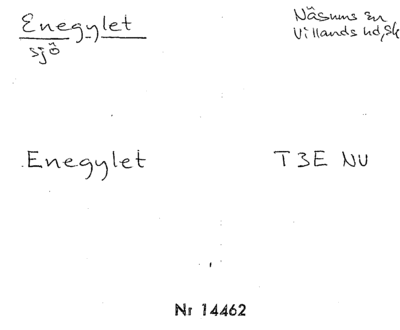 Enegylet
sjö
Näsums sn
Villands hd, Sk
Enegylet
T3E NV
Nr 14462